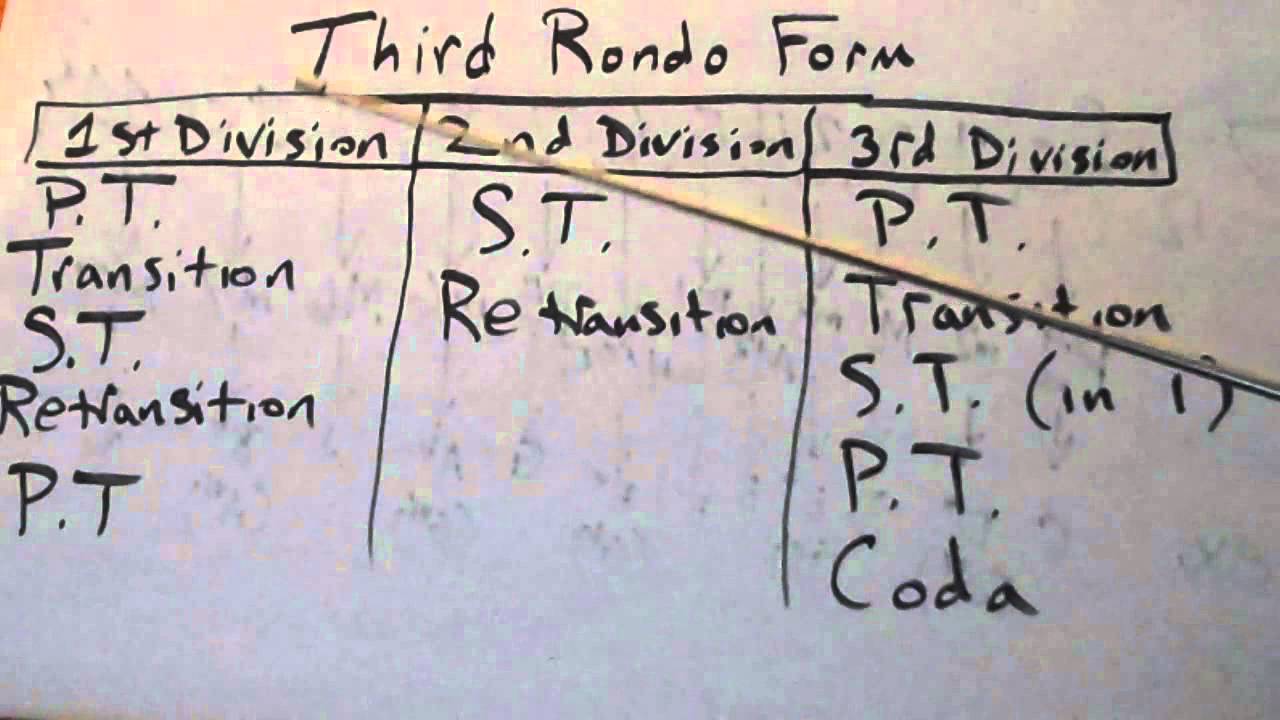 Third Rondo Form
1st Division
P.T.
Transition
S.T.
Retransition
P.T
2nd Division
S.T.
Retransition
3rd Division
P.T.
Transition
S.T. (in 1)
P.T.
Coda